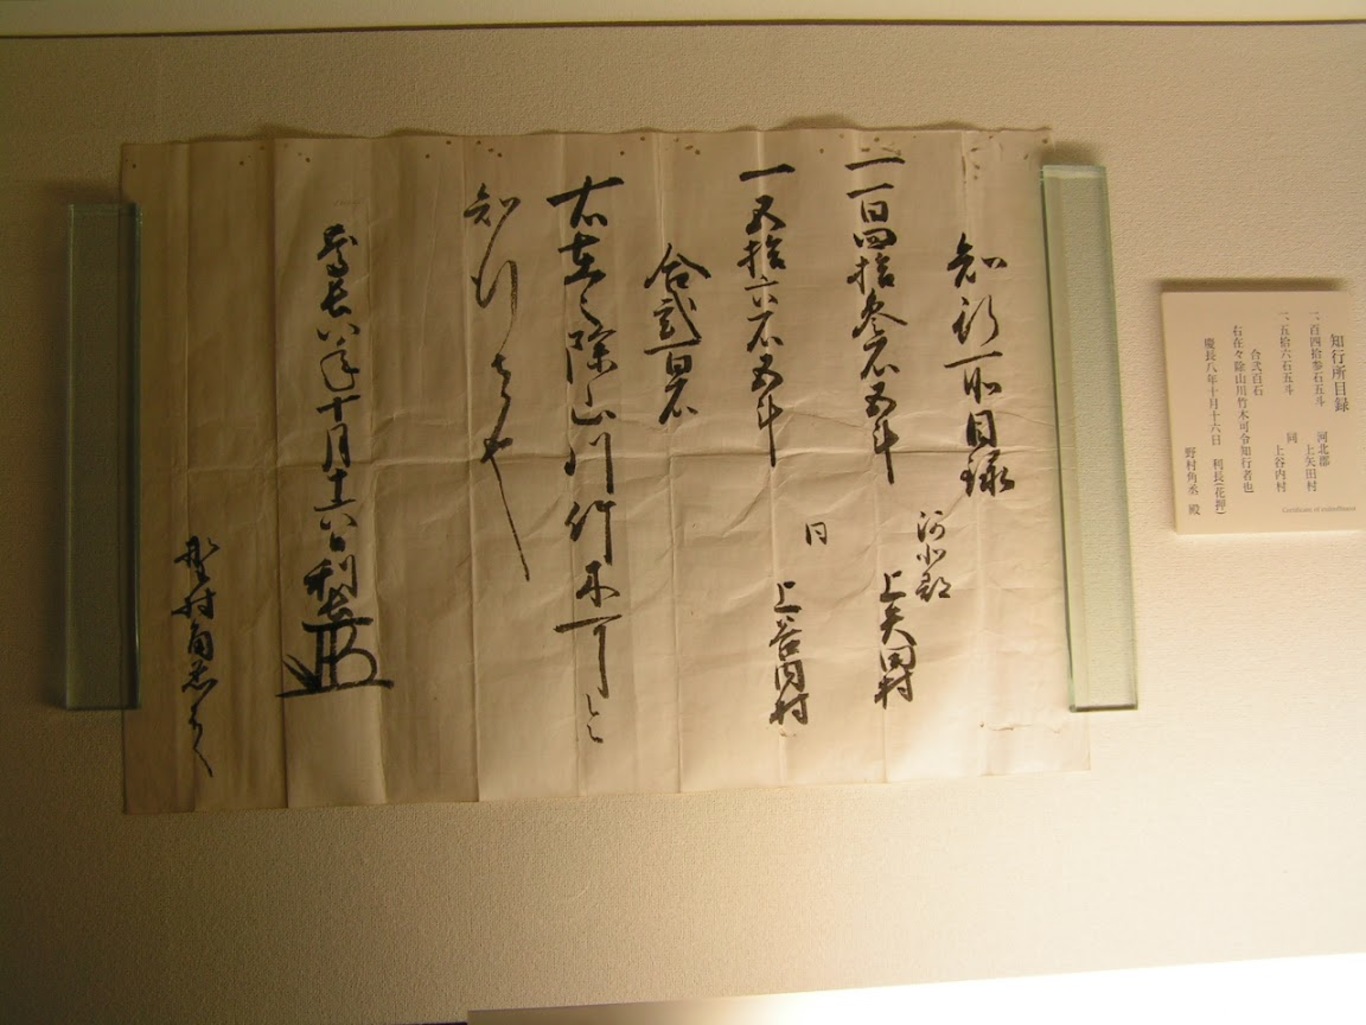 知行所目録
一百四拾参石五斗
河北郡
上矢田村
一五拾六石五斗
同
上谷内村
合弐百石
右在々除山川竹木可令
知行者也
慶長八年十月十六日利長
野村角丞殿
知行所目録
一、百四拾参石五斗
河北郡
上矢田村
一、五拾六石五斗
同
上谷内村
合弐百石
右在々除山川竹木可令知行者也
慶長八年十月十六日 利長(花押)
野村角丞 殿
Certificate of enfeoffment